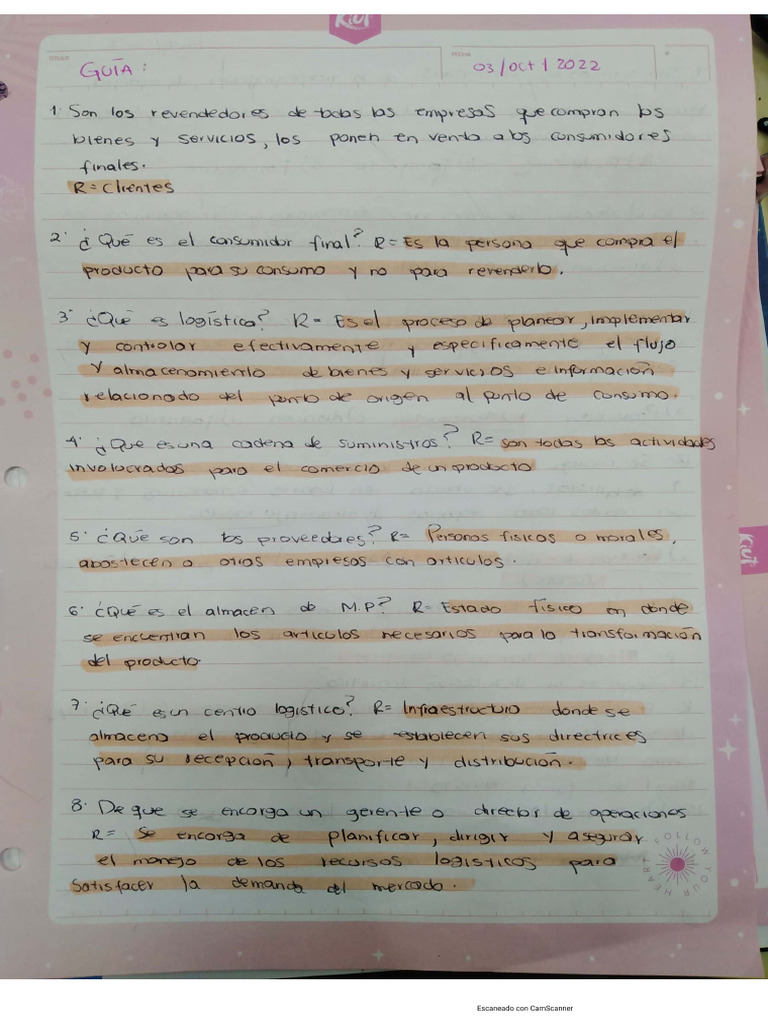 Kiut
TITULO
FECHA
GUÍA:
03/Oct/2022
1. Son los revendedores de todas las empresas que compran los
bienes y servicios, los ponen en venta a los consumidores
finales.
R= Clientes
2. ¿Qué es el consumidor final? R= Es la persona que compra el
producto para su consumo y no para revenderlo.
3. ¿Qué es logística? R= Es el proceso de planear, implementar
y controlar efectivamente y especificamente el flujo
y almacenamiento de bienes y servicios e información
relacionado del punto de origen al punto de consumo.
4. ¿Que es una cadena de suministros? R= son todas las actividades
involucradas para el comercio de un producto
5. ¿Qué son los proveedores? R= Personas fisicas o morales,
abastecen a otras empresas con articulos.
6. ¿Qué es el almacen de M.P? R= Estado físico en donde
se encuentran los articulos necesarios para la transformación
del producto.
7. ¿Qué es un centro logistico? R= Infraestructura donde se
almacena el producto y se establecen sus directrices
para su recepción, transporte y distribución.
8. De que se encarga un gerente o director de operaciones
R= Se encarga de planificar, dirigir y asegurar
el manejo de los recursos logisticos para
satisfacer la demanda del mercado.
FOLLOW YOUR HEART
Kiut
Escaneado con CamScanner